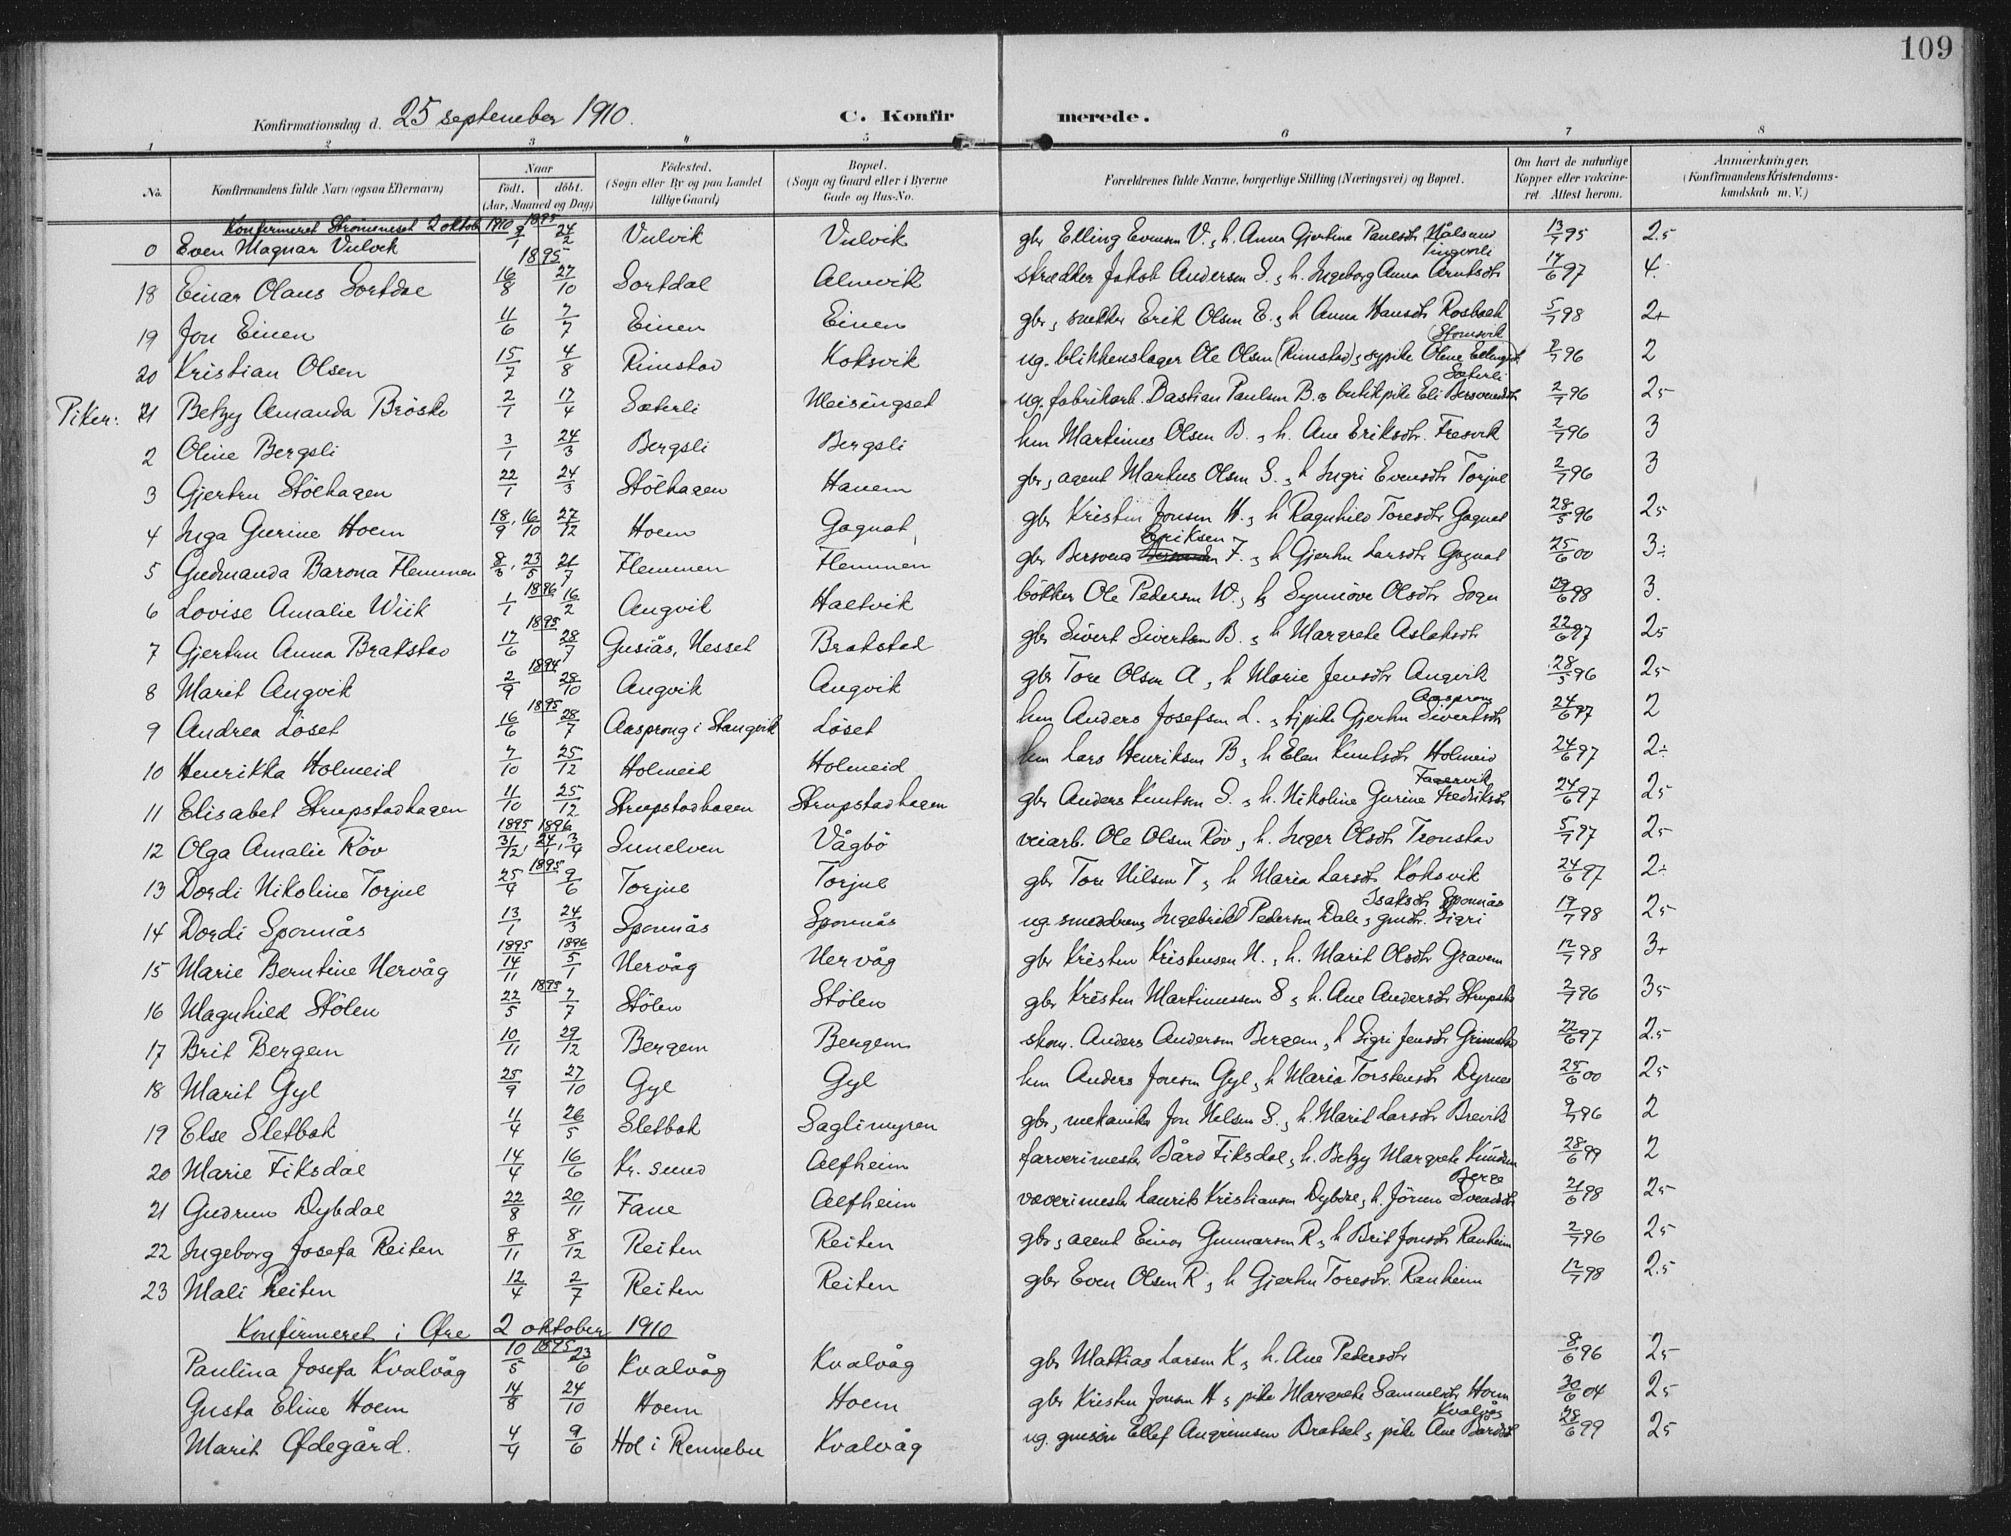 109
Konfirmationsdag d. 25 september 1910.
C. Konfirmerede.
1 2 3 4 5 6 7 8
No. Konfirmandens fulde Navn (ogsaa Efternavn) Naar født. døbt. (Aar, Maaned og Dag) Fødested. (Sogn eller By og paa Landet tillige Gaard) Bopæl. (Sogn og Gaard eller i Byerne Gade og Hus-No. Forældrenes fulde Navne, borgerlige Stilling (Næringsvei) og Bopæl. Om havt de naturlige Kopper eller vakcineret. Attest herom. Anmærkninger. (Konfirmandens Kristendomskundskab m. V.)
Konfirmeret Strømsneset 2 oktob 1910 1895
0 Even Magnar Vulvik 24/2 Vulvik Vulvik gbr Elling Evensen V., h. Anna Gjertine Paulsdtr Målsund 13/7 95 2.5
1895 Tingvoll
18 Einar Olaus Sortdal 16/8 27/10 Sortdal Almvik skrædder Jakob Andersen S., h. Ingeborg Anna Arntsdtr 14/6 97 4.
19 Jon Einen 11/6 7/7 Einen Einen gbr, snekker Erik Olsen E., h Anna Hansdtr Rosbak 5/7 98 2+
20 Kristian Olsen 15/7 4/8 Rimstad Koksvik ug. blikkenslager Ole Olsen (Rimstad), sypike Oline Ellingsdt 2/7 96 2
Piker: 21 Betzy Amanda Brøske 2/1 17/4 Sæterli Meisingset ug. fabrikarb. Bastian Paulsen B. & butikpike Eli Bersvendsdtr Sæterli 2/7 96 25
2 Oline Bergsli 3/1 24/3 Bergsli Bergsli hm Martinus Olsen B., h. Ane Eriksdtr. Fresvik 2/7 96 3
3 Gjertru Stølhagen 22/1 24/3 Stølhagen Hanem gbr, agent Markus Olsen S., h Ingri Evensdtr Torjul 2/7 96 3
4 Inga Gurine Hoem 18/9, 16/10 27/12 Hoem Gagnat gbr Kristen Jonsen H., h Ragnhild Toresdtr Gagnat 28/5 96 25
5 Gudmanda Barona Flemmen 8/3, 23/5 21/7 Flemmen Flemmen gbr Bersvend Eriksen F., h Gjertru Larsdtr Gagnat 25/6 00 3÷
6 Lovise Amalie Wiik 1/1 1896 16/2 Angvik Haltvik bøkker Ole Pedersen W., h Synnøve Olsdtr Sogn 29/6 98 3.
7 Gjertru Anna Brakstad 17/6 1895 28/7 Gusiås, Nesset Brakstad gbr Sivert Sivertsen B., h Margrete Aslaksdtr 22/6 97 25
8 Marit Angvik 2/9 1894 28/10 Angvik Angvik gbr Tore Olsen A, h Marie Jensdtr Angvik 28/5 96 25
9 Andrea Løset 16/6 1895 28/7 Aasprong i Stangvik Løset hm Anders Josefsen L., tjpike Gjertru Sivertsdtr Aasprong 24/6 97 2
10 Henrikka Holmeid 7/10 25/12 Holmeid Holmeid hm Lars Henriksen B, h Elen Knutsdtr Holmeid 24/6 97 2÷
11 Elisabet Strupstadhagen 11/10 25/12 Strupstadhagen Strupstadhagen gbr Anders Knutsen S., h. Nikoline Gurine Fredriksdtr Fagervik 24/6 97 25
12 Olga Amalie Røv 1895 31/12, 1896 24/1, 3/4 Sunelven Vågbø veiarb. Ole Olsen Røv, h. Inger Olsdtr Tronstad 5/7 97 25
13 Dordi Nikoline Torjul 25/4 1895 9/6 Torjul Torjul gbr Tore Nilsen T, h Maria Larsdtr Koksvik 24/6 97 2÷
14 Dordi Sponnås 13/1 24/3 Sponnås Sponnås ug. smeddreng Ingebrikt Pedersen Dale, gmdtr. Sigri Isaksdtr Sponnås 19/7 98 25
15 Marie Berntine Nervåg 1895 14/11 1896 5/1 Nervåg Nervåg gbr Kristen Kristensen N., h. Marit Olsdtr Gravem 12/7 98 3+
16 Magnhild Stølen 22/5 1895 7/7 Stølen Stølen gbr Kristen Martinussen S, h. Ane Andersdtr Strupstad 2/7 96 35
17 Brit Bergem 10/11 29/12 Bergem Bergem skom. Anders Andersen Bergem, h Sigri Jensdtr Grimstad 22/6 97 2.5
18 Marit Gyl 25/9 27/10 Gyl Gyl hm Anders Jonsen Gyl, h Maria Torstensdtr Dyrnes 25/6 00 25
19 Else Sletbak 11/4 26/5 Sletbak Saglimyren gbr, mekaniker Jon Nilsen S., h. Marit Larsdtr Brevik 9/7 96 2
20 Marie Fiksdal 14/4 16/6 Kr. sund Alfheim farverimester Bård Fiksdal, h. Betzy Margrete Knudsen 28/6 99 2
21 Gudrun Dybdal 22/8 20/11 Fane Alfheim væverimester Laurits Kristiansen Dybdal, h. Jørine Svendsdtr Berge 21/6 98 25
22 Ingeborg Josefa Reiten 8/11 8/12 Reiten Reiten gbr, agent Einar Gunnarsen R, h Brit Jonsdtr Ranheim 2/7 96 25
23 Mali Reiten 12/4 2/7 Reiten Reiten gbr Even Olsen R, h Gjertru Toresdtr. Ranheim 12/7 98 2.5
Konfirmeret i Øre 2 oktober 1910
Paulina Josefa Kvalvåg 10/5 1895 23/6 Kvalvåg Kvalvåg gbr Mathias Larsen K, h. Ane Pedersdtr 8/6 96 25
Gusta Eline Hoem 14/8 24/10 Hoem Hoem gbr Kristen Jonsen H, pike Margrete Samuelsdtr Hoem 30/6 04 25
Marit Ødegård. 4/4 9/6 Hol i Rennebu Kvalvåg ug. gmsøn Ellef Angrimsen Bratset, pike Ane Bårdsdt Kvalvåg 28/6 99 25